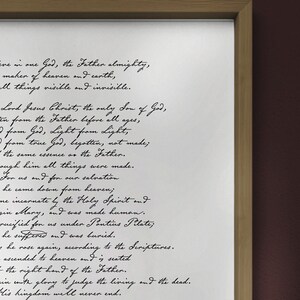 in one God, the Father almighty,
maker of heaven and earth,
all things visible and invisible.
Lord Jesus Christ, the only Son of God,
from the Father before all ages,
from God, Light from Light,
from true God, begotten, not made;
the same essence as the Father.
him all things were made.
For us and for our salvation
he came down from heaven;
incarnate by the Holy Spirit and
Mary, and was made human.
for us under Pontius Pilate;
he suffered and was buried.
he rose again, according to the Scriptures.
ascended to heaven and is seated
the right hand of the Father.
with glory to judge the living and the dead.
His kingdom will never end.